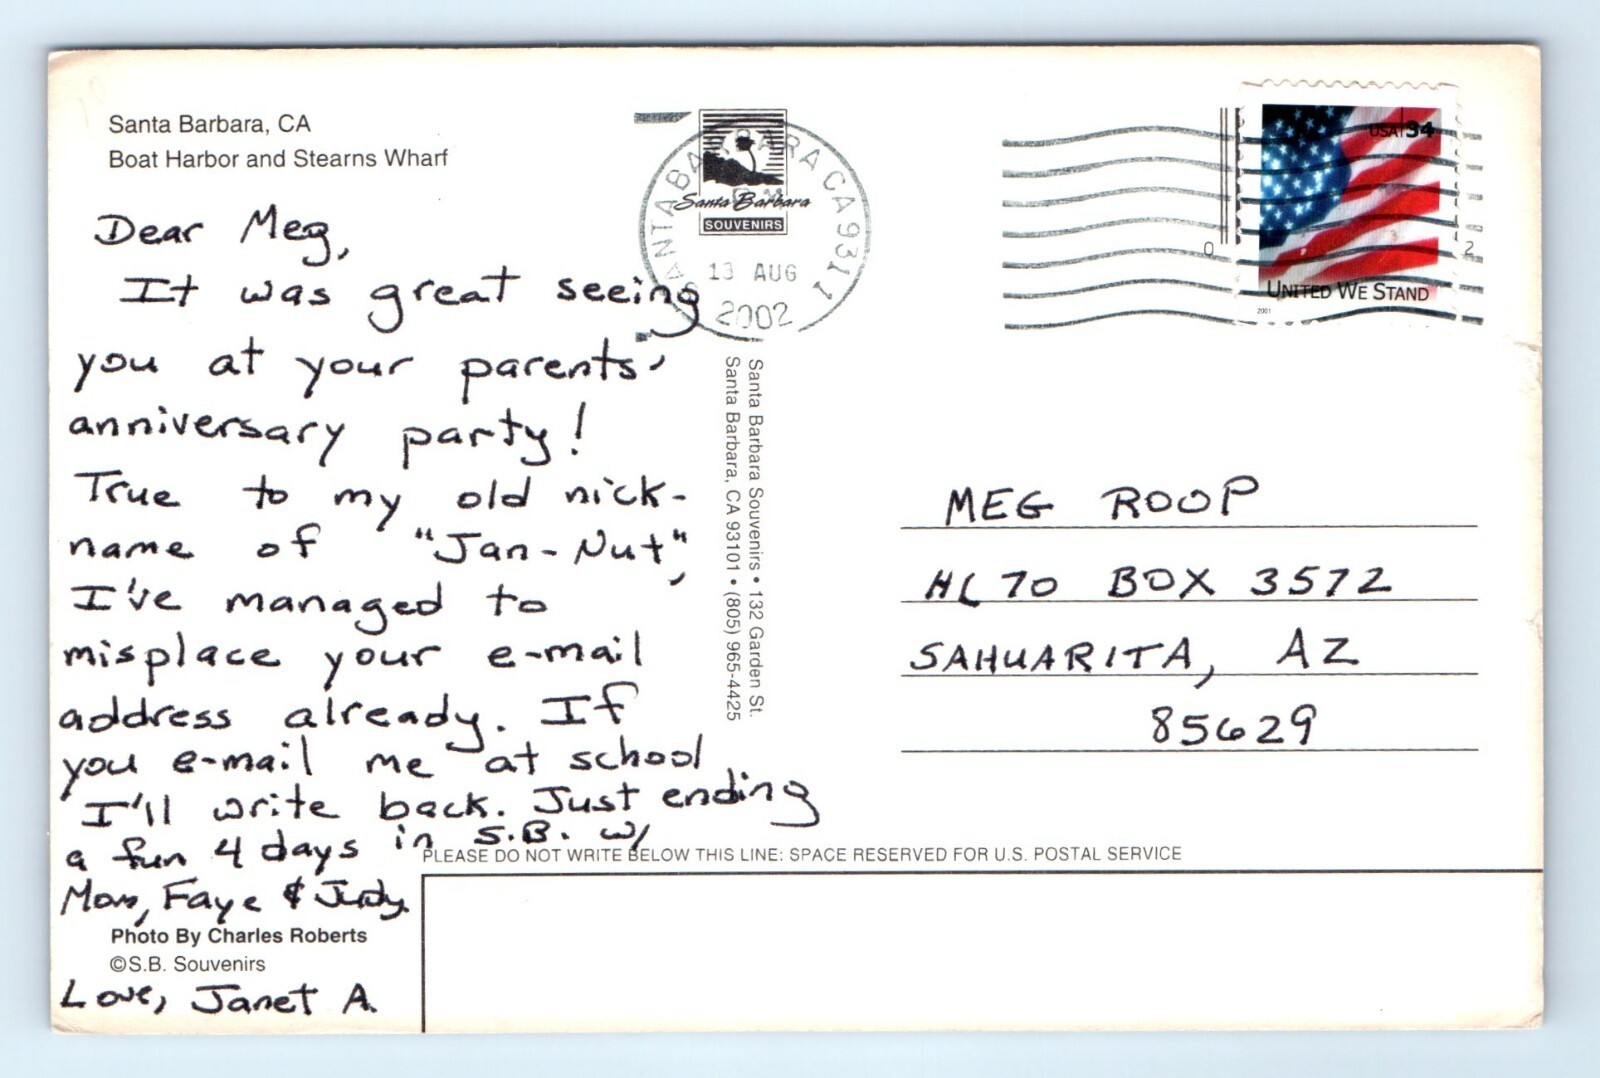 Santa Barbara, CA
Boat Harbor and Stearns Wharf
Dear Meg,
It was great seeing
you at your parents'
anniversary party!
True to my old nick-
name of "Jan-Nut",
I've managed to
misplace your e-mail
address already. If
you e-mail me at school
I'll write back. Just ending
a fun 4 days in S.B. w/
Mom, Faye & Judy.
Photo By Charles Roberts
©S.B. Souvenirs
Love, Janet A.
SANTA BARBARA CA 9311
Santa Barbara
SOUVENIRS
13 AUG
2002
Santa Barbara Souvenirs • 132 Garden St.
Santa Barbara, CA 93101 • (805) 965-4425
USA 34
UNITED WE STAND
2001
0
2
MEG ROOP
HC 70 BOX 3572
SAHUARITA, AZ
85629
PLEASE DO NOT WRITE BELOW THIS LINE: SPACE RESERVED FOR U.S. POSTAL SERVICE